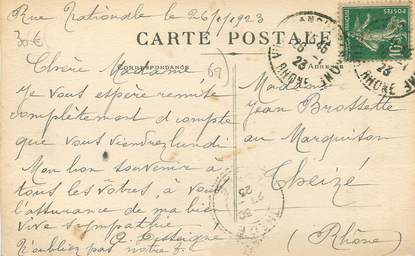 Rue Nationale le 26/1/1923
30€
CARTE POSTALE
CORRESPONDANCE
ADRESSE
Chère Madame
69
Je vous espère remise
complètement d compte
que vous viendrez lundi
Mon bon souvenir à
tous les vôtres, a vous
l'assurance de ma bien
vive sympathie
N'oubliez pas notre
Madame
Jean Brossette
au Marquison
Theizé
(Rhône)
POSTES
10
RHONE